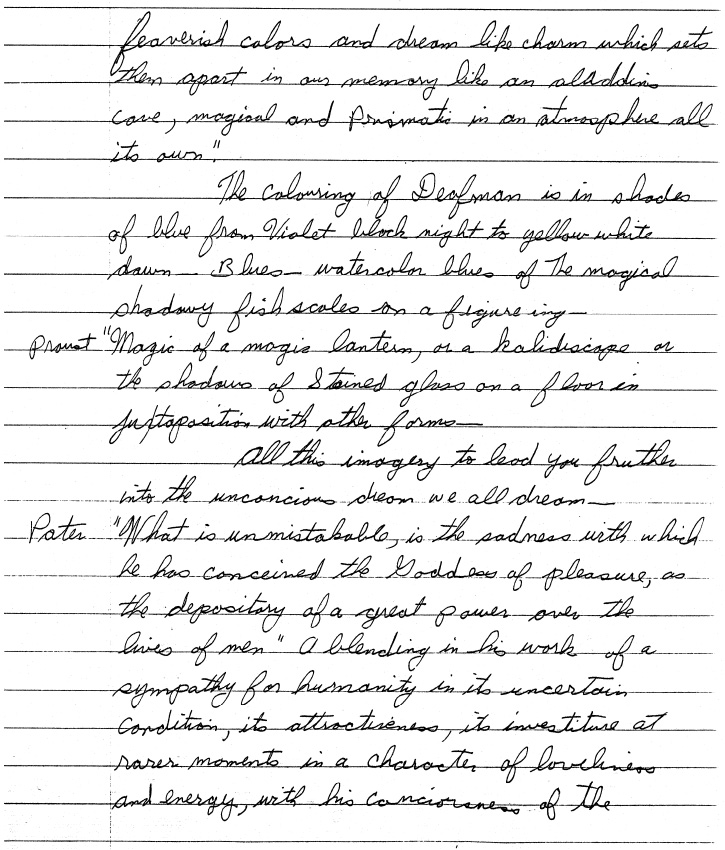 feaverish colors and dream like charm which sets
them apart in our memory like an aladdins
cave, magical and Prismatic in an atmosphere all
its own".
The colouring of Deafman is in shades
of blue from Violet black night to yellow white
dawn — Blues — watercolor blues of The magical
shadowy fish scales on a figure ing —
Proust "Magic of a magic lantern, or a kalidiscope or
the shadows of Stained glass on a floor in
juxtaposition with other forms —
All this imagery to lead you fruther
into the unconcious dream we all dream —
Pater "What is unmistakable, is the sadness with which
he has conceined the Goddess of pleasure, as
the depository of a great power over the
lives of men" A blending in his work of a
sympathy for humanity in its uncertain
Condition, its attractiveness, its investiture at
rarer moments in a character of loveliness
and energy, with his conciorsness of the